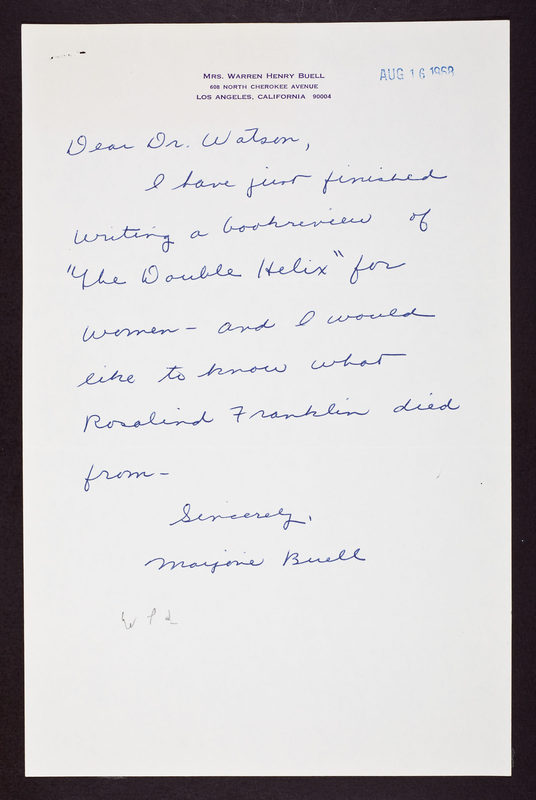 MRS. WARREN HENRY BUELL
608 NORTH CHEROKEE AVENUE
LOS ANGELES, CALIFORNIA 90004
AUG 16 1968
Dear Dr. Watson,
I have just finished
writing a bookreview of
"The Double Helix" for
women – and I would
like to know what
Rosalind Franklin died
from –
Sincerely,
Marjorie Buell